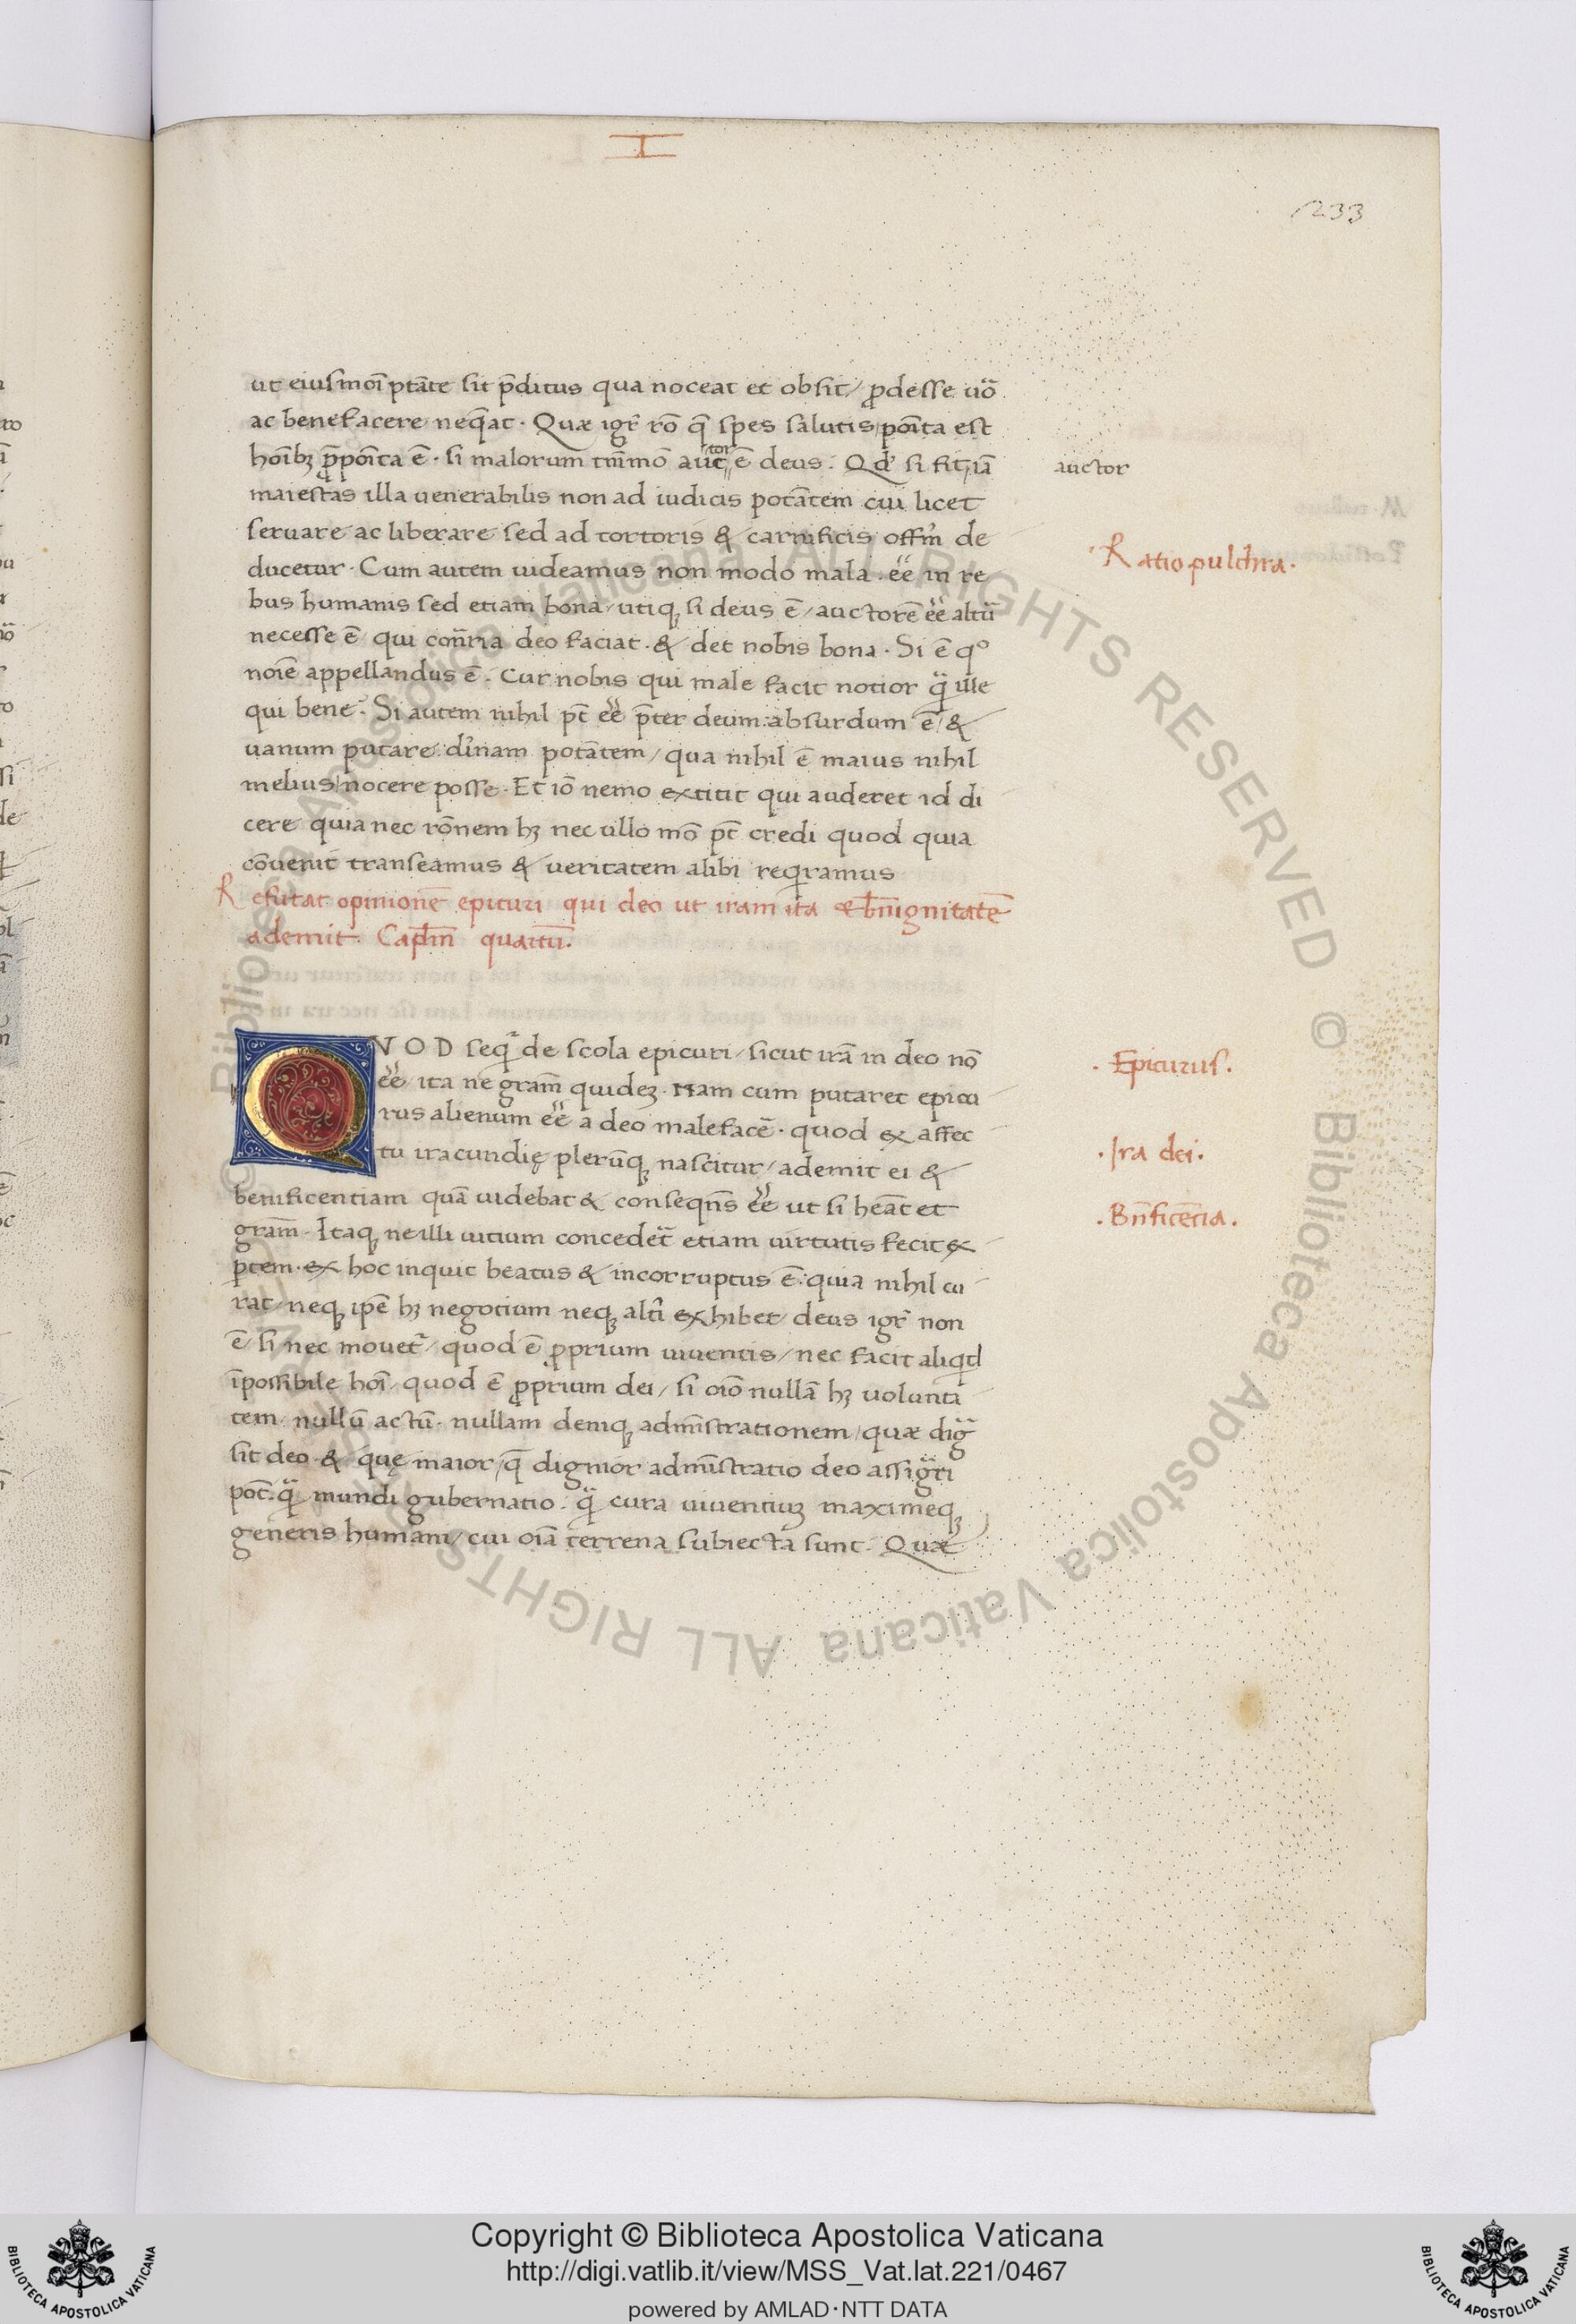 I
233
ut eiusmōi ptāte sit p̄ditus qua noceat et obsit / ꝓdesse uō
ac benefacere neq̄at · Quæ igr̄ rō q̄ spes salutis / poīta est
hoībꝫ p̄poīta ē · si malorum tm̄mō auctor ē deus . Qd̓ si fit / iā
auctor
maiestas illa uenerabilis non ad iudicis potātem cui licet
seruare ac liberare sed ad tortoris & carnificis offm̄ de
ducetur · Cum autem uideamus non modo mala . ēē in re
Ratio pulchra .
bus humanis sed etiam bona / utiqꝫ si deus ē / auctorē ēē altū
necesse ē / qui contr̄ria deo faciat . & det nobis bona . Si ē qº
noīe appellandus ē . Cur nobis qui male facit notior q̄ ille
qui bene . Si autem nihil pt̄ ēē p̄ter deum : absurdum ē / &
uanum putare diuīnam potātem / qua nihil ē maius nihil
melius / nocere posse . Et iō nemo extitit qui auderet id di
cere quia nec rōnem hꝫ nec ullo mō pt̄ credi quod quia
cōuenit transeamus & ueritatem alibi reqiramus
Refutat opinionē epicuri qui deo ut iram ita & bn̄ignitatē
ademit . Capl̄m quartū .
QVOD seqr̄ de scola epicuri / sicut irā in deo nō
Epicurus .
ēē / ita ne gram̄ quideꝫ . Nam cum putaret epicu
rus alienum ēē a deo malefacē . quod ex affec
. Ira dei .
tu iracundię plerūqꝫ nascitur / ademit ei &
benificentiam quā uidebat & conseqn̄s ēē ut si heāt et
. Bn̄ficētia .
gram̄ . Itaqꝫ ne illi uitium concedēt etiam uirtutis fecit ex
ptem . ex hoc inquit beatus & incorruptus ē : quia nihil cu
rat / neqꝫ ipē hꝫ negotium neqꝫ altī exhibet / deus igr̄ non
ē / si nec mouet̄ / quod ē ꝓprium uiuentis / nec facit aliqd
īpossibile hoī / quod ē ꝓprium dei / si oīo nullā hꝫ uolunta
tem nullū actū . nullam deniqꝫ admīstrationem / quæ dig
sit deo & quę maior / q̄ dignior admīstratio deo assigri
pōt . q̄ mundi gubernatio . q̄ cura uiuentiuꝫ maximeqꝫ
generis humani / cui oīa terrena subiecta sunt . Quæ
Copyright © Biblioteca Apostolica Vaticana
http://digi.vatlib.it/view/MSS_Vat.lat.221/0467
powered by AMLAD·NTT DATA